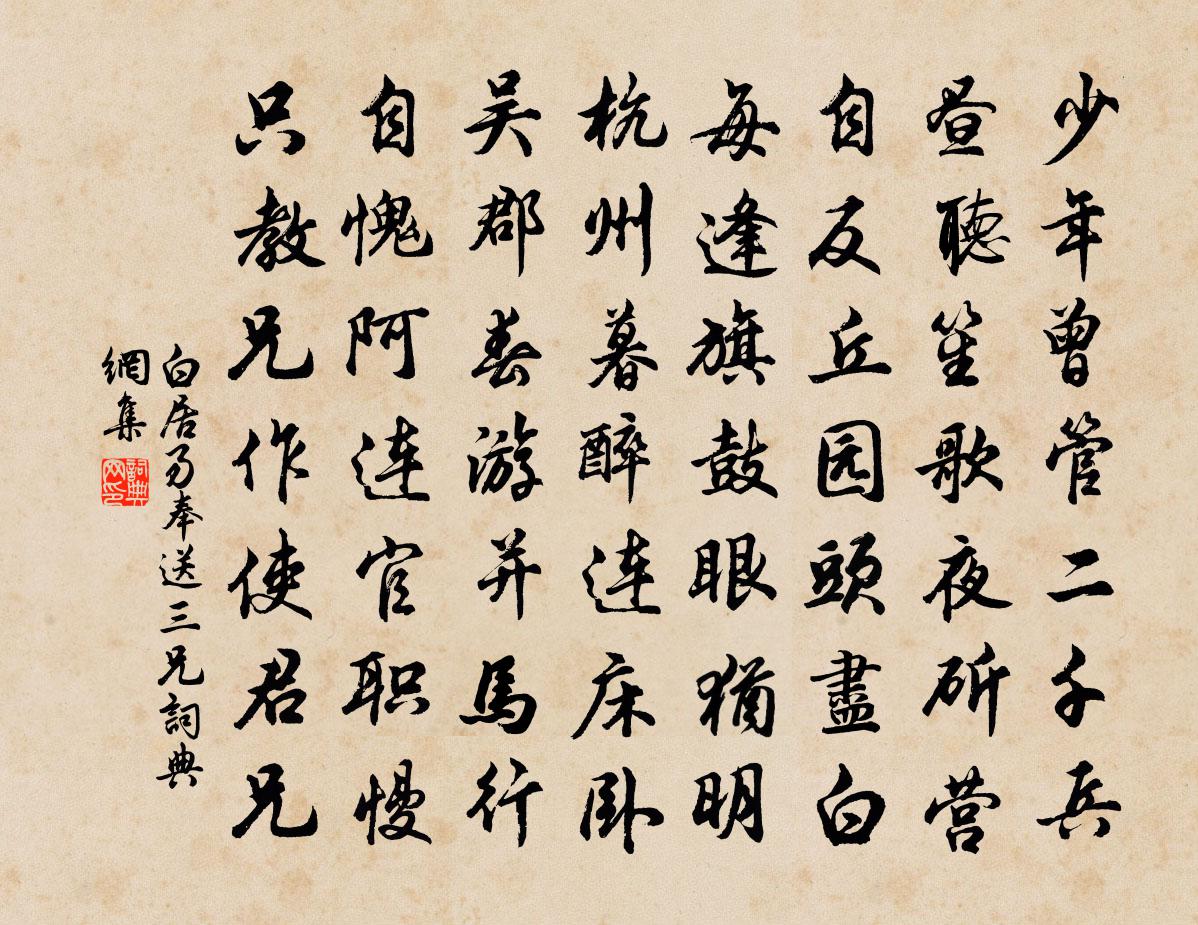 少年曾管二千兵
昼聽笙歌夜斫营
自反丘园頭盡白
每逢旗鼓眼猶明
杭州暮醉連床卧
吴郡春游并馬行
自愧阿連官职慢
只教兄作使君兄
白居易奉送三兄詞典
網集
詞典网印